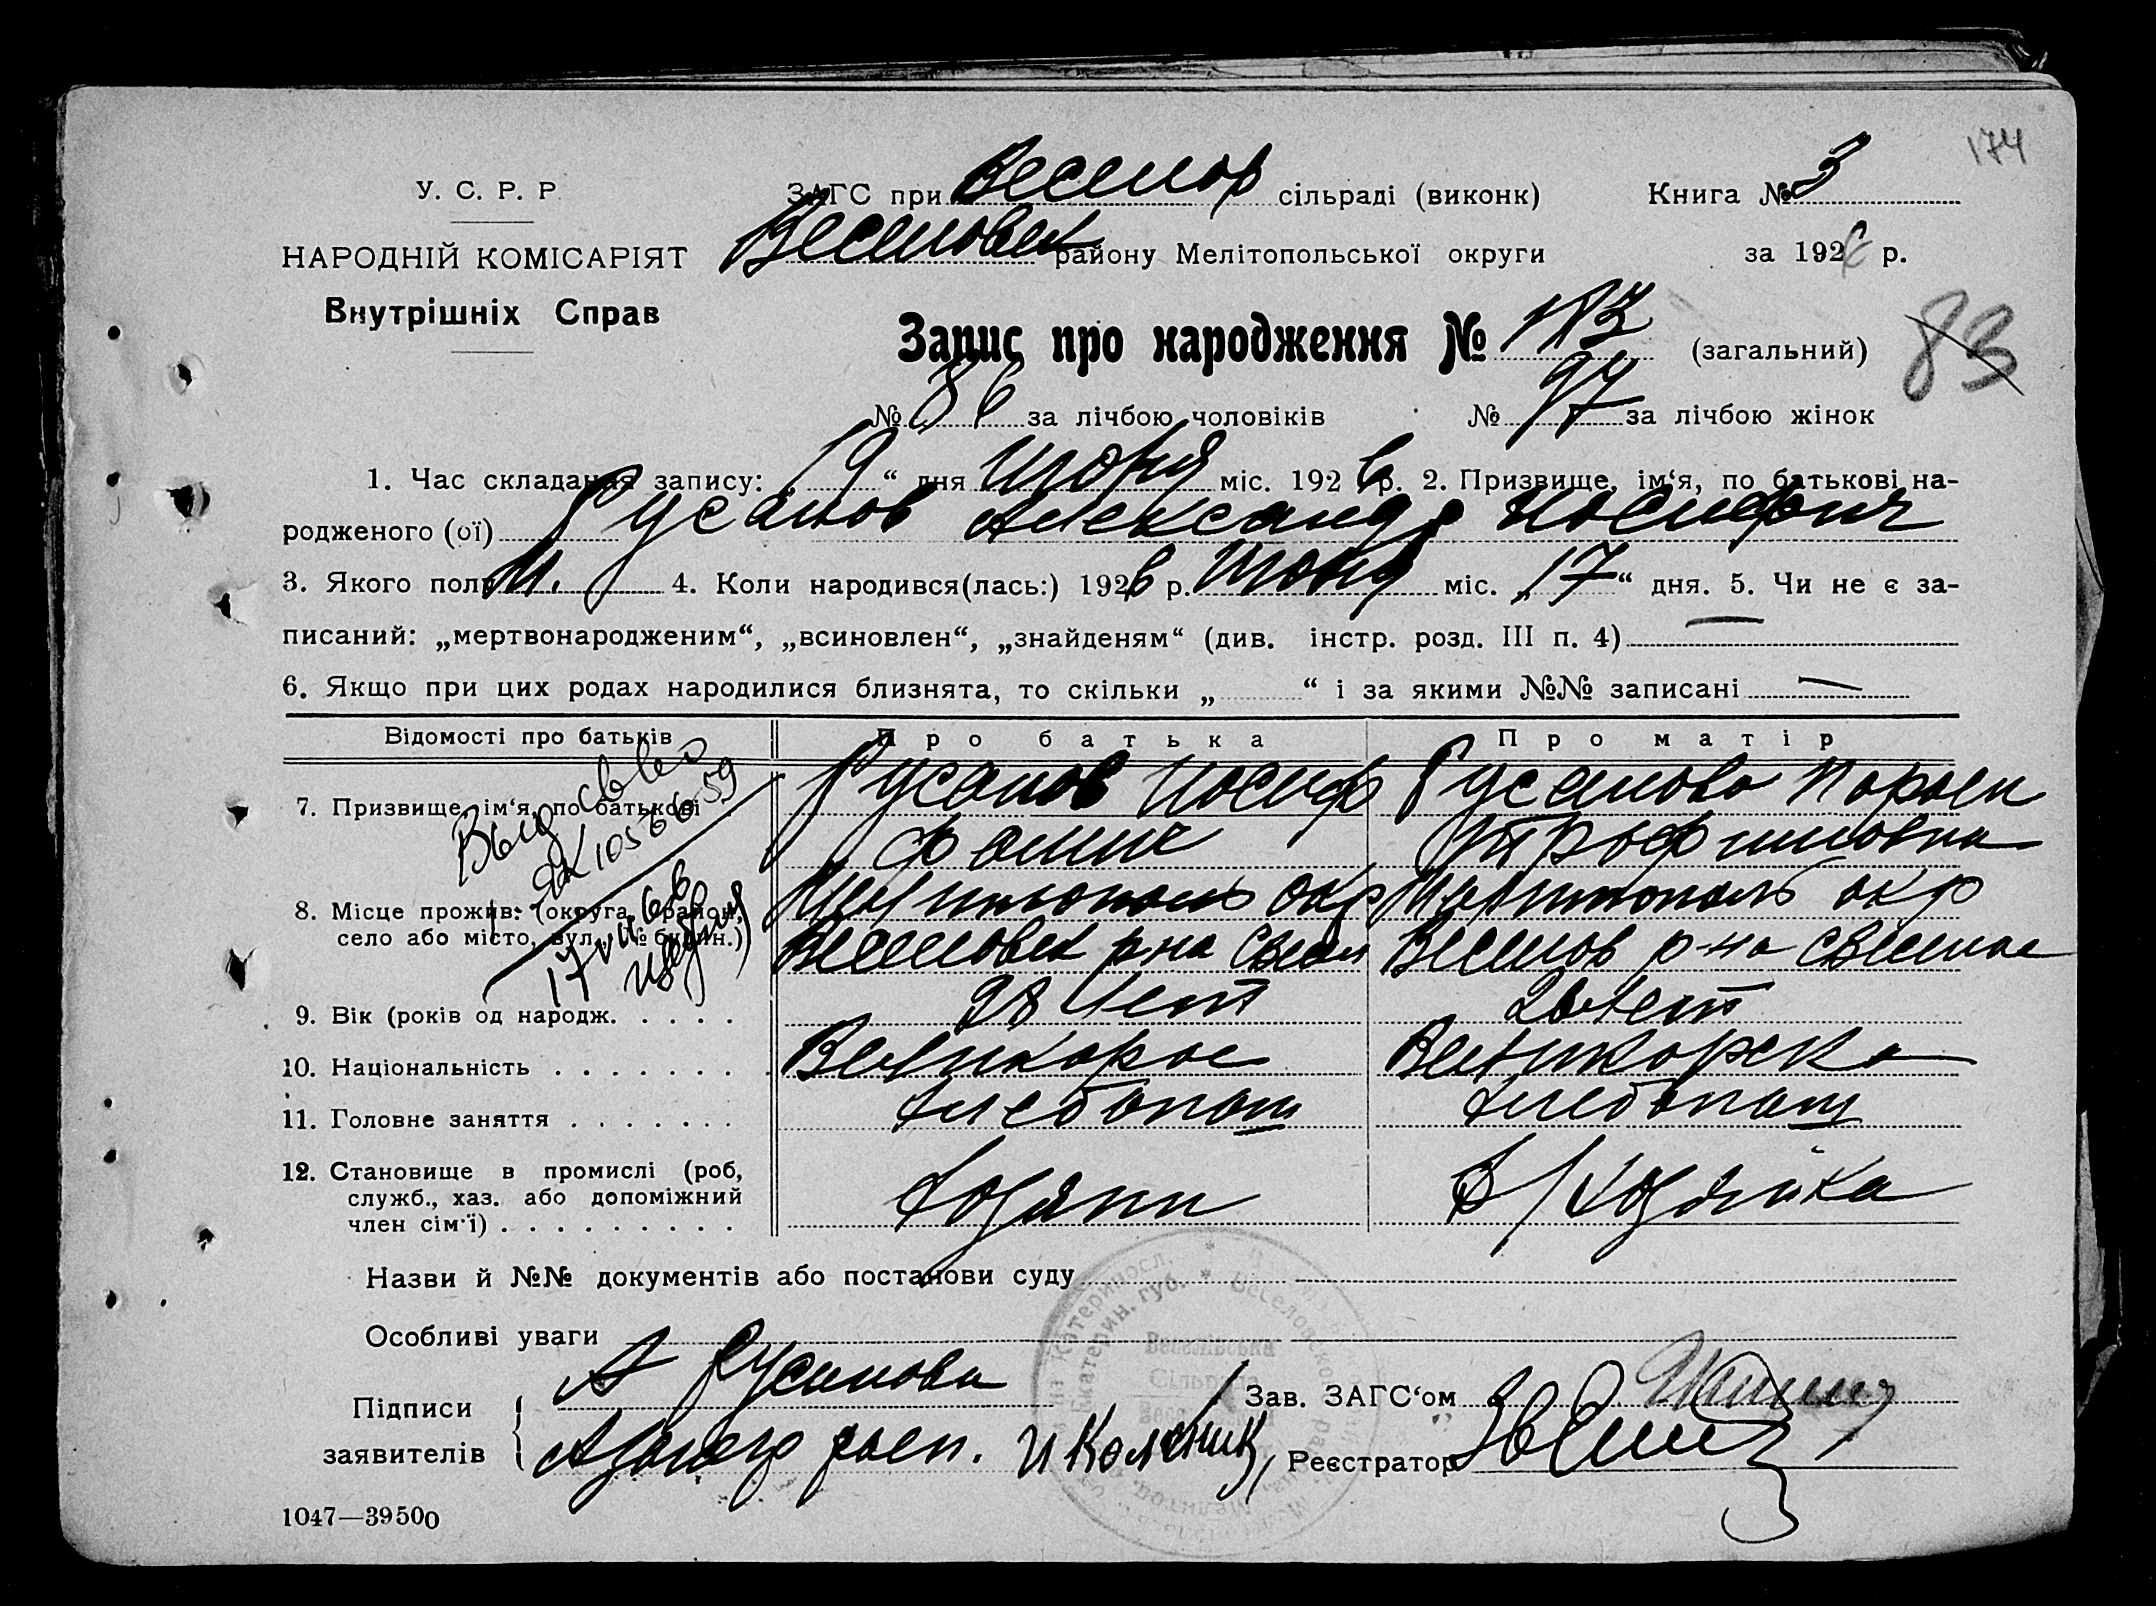 174
У. С. Р. Р.
ЗАГС при Веселов сільраді (виконк)
Книга № 3
НАРОДНІЙ КОМІСАРІЯТ
Веселовск району Мелітопольської округи
за 1926 р.
Внутрішніх Справ
Запис про народження № 183 (загальний)
83
№ 86 за лічбою чоловіків № 97 за лічбою жінок
1. Час складання запису: „19“ дня Июня міс. 1926 р. 2. Призвище, ім‘я, по батькові на-
родженого (ої) Русанов Александр Иосифович
3. Якого полу М. 4. Коли народився(лась:) 1926 р. Июня міс. „17“ дня. 5. Чи не є за-
писаний: „мертвонародженим“, „всиновлен“, „знайденям“ (див. інстр. розд. III п. 4) —
6. Якщо при цих родах народилися близнята, то скільки „ “ і за якими №№ записані —
Відомості про батьків Про батька Про матір
7. Призвище, ім‘я, по батькові Русанов Иосиф Русанова
Фомич Трофимовна
8. Місце прожив. (округа, район, Мелитополь окр Мелитополь окр
село або місто, вул., № будин.) Веселовск р-на Веселов р-на
Выд св во
17
9. Вік (років од народж. . . . . 28 лет лет
10. Національність . . . . . . . . Великорос Великорска
11. Головне заняття . . . . . . . Хлебопаш Хлебопаш
12. Становище в промислі (роб,
служб., хаз. або допоміжний
член сім‘ї) . . . . . . . . . Хозяин Д/хозяйка
Назви й №№ документів або постанови суду
Особливі уваги
Підписи А Русанова
заявителів расп. И Колесник
Зав. ЗАГС‘ом
Реєстратор
Веселівська
Сільрада
1047—39500